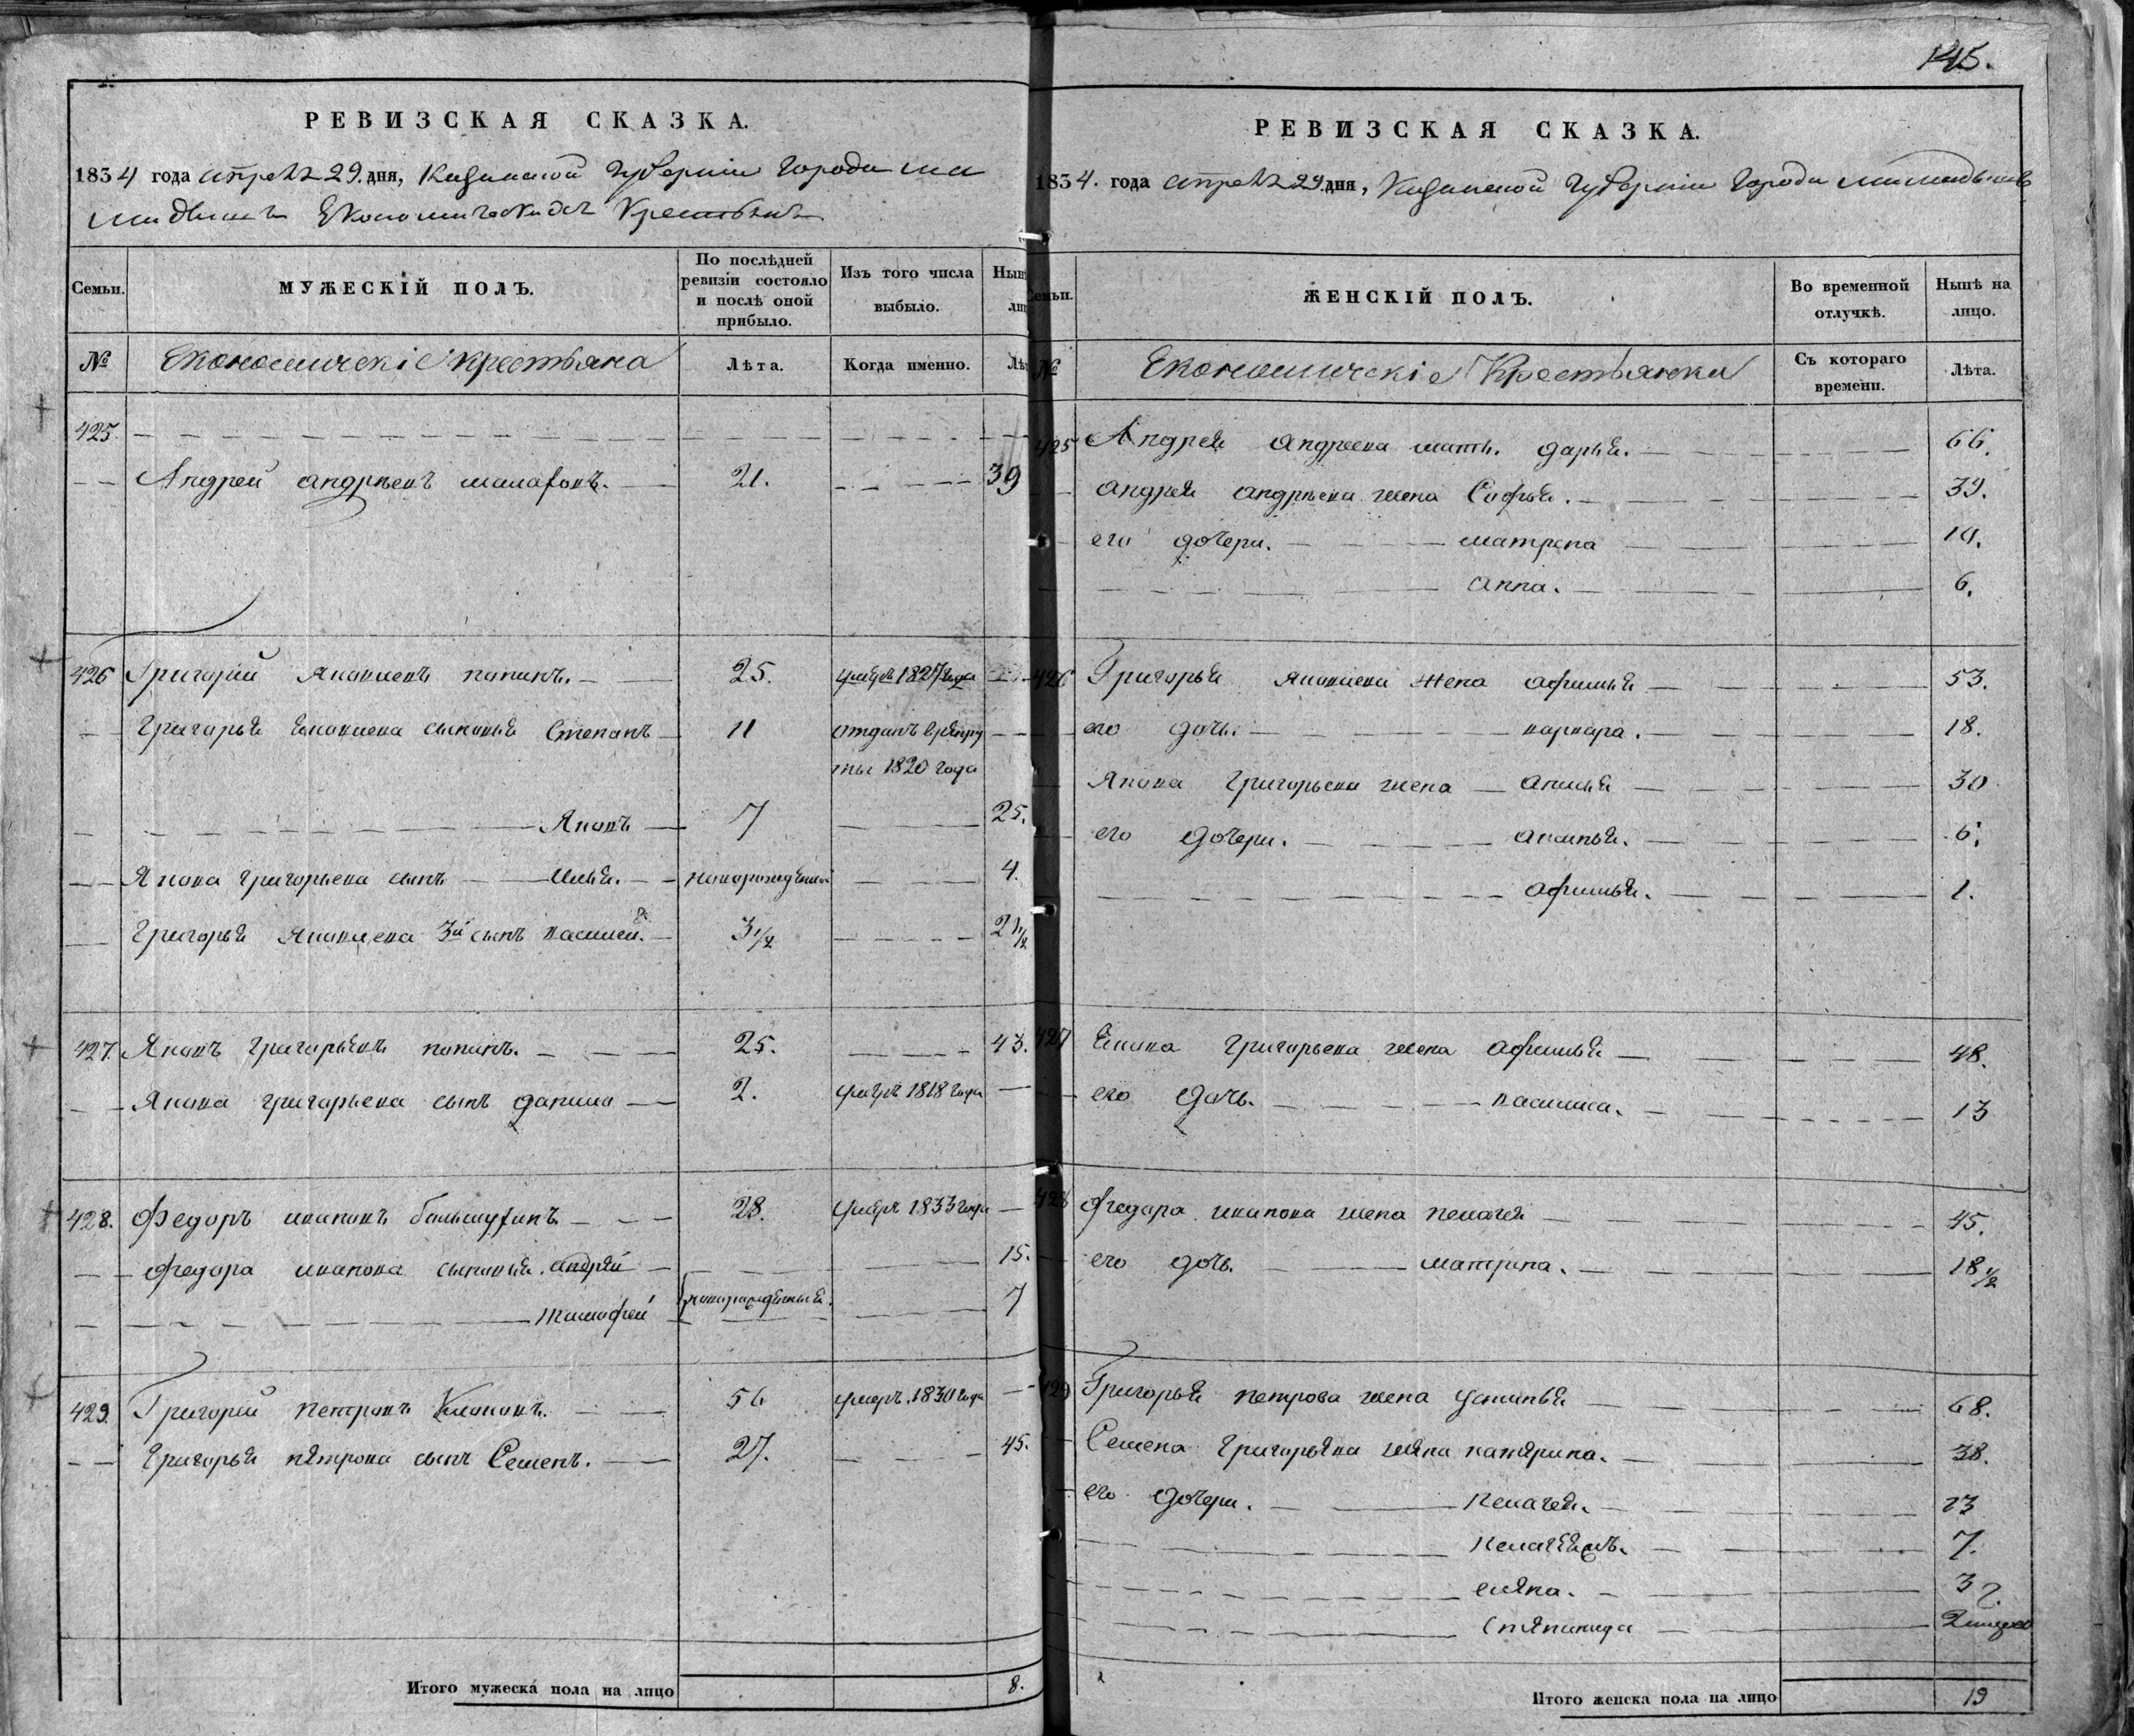 145.
РЕВИЗСКАЯ СКАЗКА.
1834 года апреля 29. дня, Казанской Губернии Города ма
мадыша Економическихъ Крестьянъ
Семьи.
МУЖЕСКІЙ ПОЛЪ.
По послѣдней ревизіи состояло и послѣ оной прибыло.
Изъ того числа выбыло.
Нын
ли
№
Економическіе крестьяна
Лѣта.
Когда именно.
Лѣ
425.
Андрей андрѣевъ малафѣвъ. 21. 39
426 Григорій Яковлевъ папинъ. 25. умеръ 1827 года
Григорья Яковлева сыновья Степанъ 11 отданъ в рекру
ты 1820 года
Яковъ 7 25.
Якова григорьева сынъ Илья. новорожденной 4.
Григорья Яковлева 3й сынъ василей. 3 1/2 21 1/2
427. Яковъ григорьевъ папинъ. 25. 43.
Якова григорьева сынъ данило 2. умеръ 1818 года
428. Федоръ ивановъ 28. умеръ 1833 года
Федора иванова сыновья. андрей 15.
тимофей новорожденныя. 7
429. Григорей петровъ 56 умеръ. 1830 года
Григорья петрова сынъ Семенъ. 27. 45.
Итого мужеска пола на лицо 8.
РЕВИЗСКАЯ СКАЗКА.
1834. года апреля 29. дня, Казанской Губернии Города мамадыша
Семьи.
ЖЕНСКІЙ ПОЛЪ.
Во временной отлучкѣ.
Нынѣ на лицо.
№
Економическіе Крестьянки
Съ котораго времени.
Лѣта.
425 Андрея андреева мать. дарья. 66.
андрея андрѣева жена Софья. 39.
его дочери. матрена 10.
анна. 6.
426 Григорья яковлева жена афимья 53.
его дочь. варвара. 18.
Якова григорьева жена анисья 30
его дочери. аксинья. 6.
афимья. 1.
427 Якова григорьева жена афимья 48.
его дочь. василиса. 13
428 Федара иванова жена пелагея 45.
его дочь. матрена. 18 1/2
429 Григорья петрова жена устинья 68.
Семена григорьева жена катерина. 38.
его дочери. пелагея. 13
7.
елена. 3
степанида
Итого женска пола на лицо 19